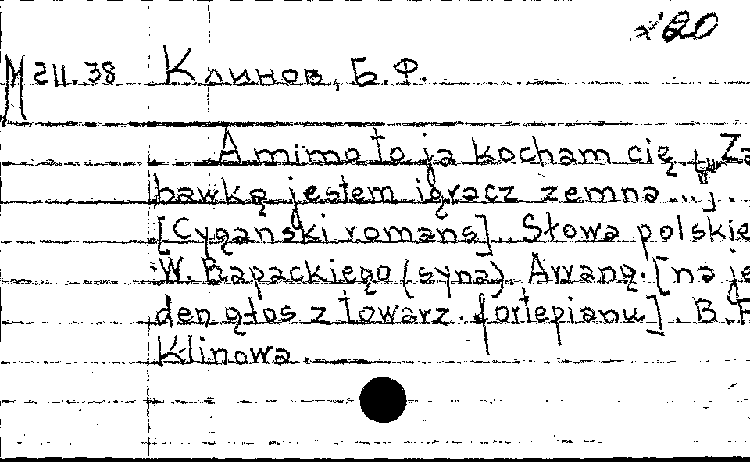 180
M 211.38 Клинов, Б. Ф.
A mimo to ja kocham cię „Za
bawką jestem igracz zemną..."].
[Cygański romans]. Słowa polskie
W. Rapackiego (syna) Arrang. [na je
den głos z towarz. fortepianu]. B. F.
Klinowa.